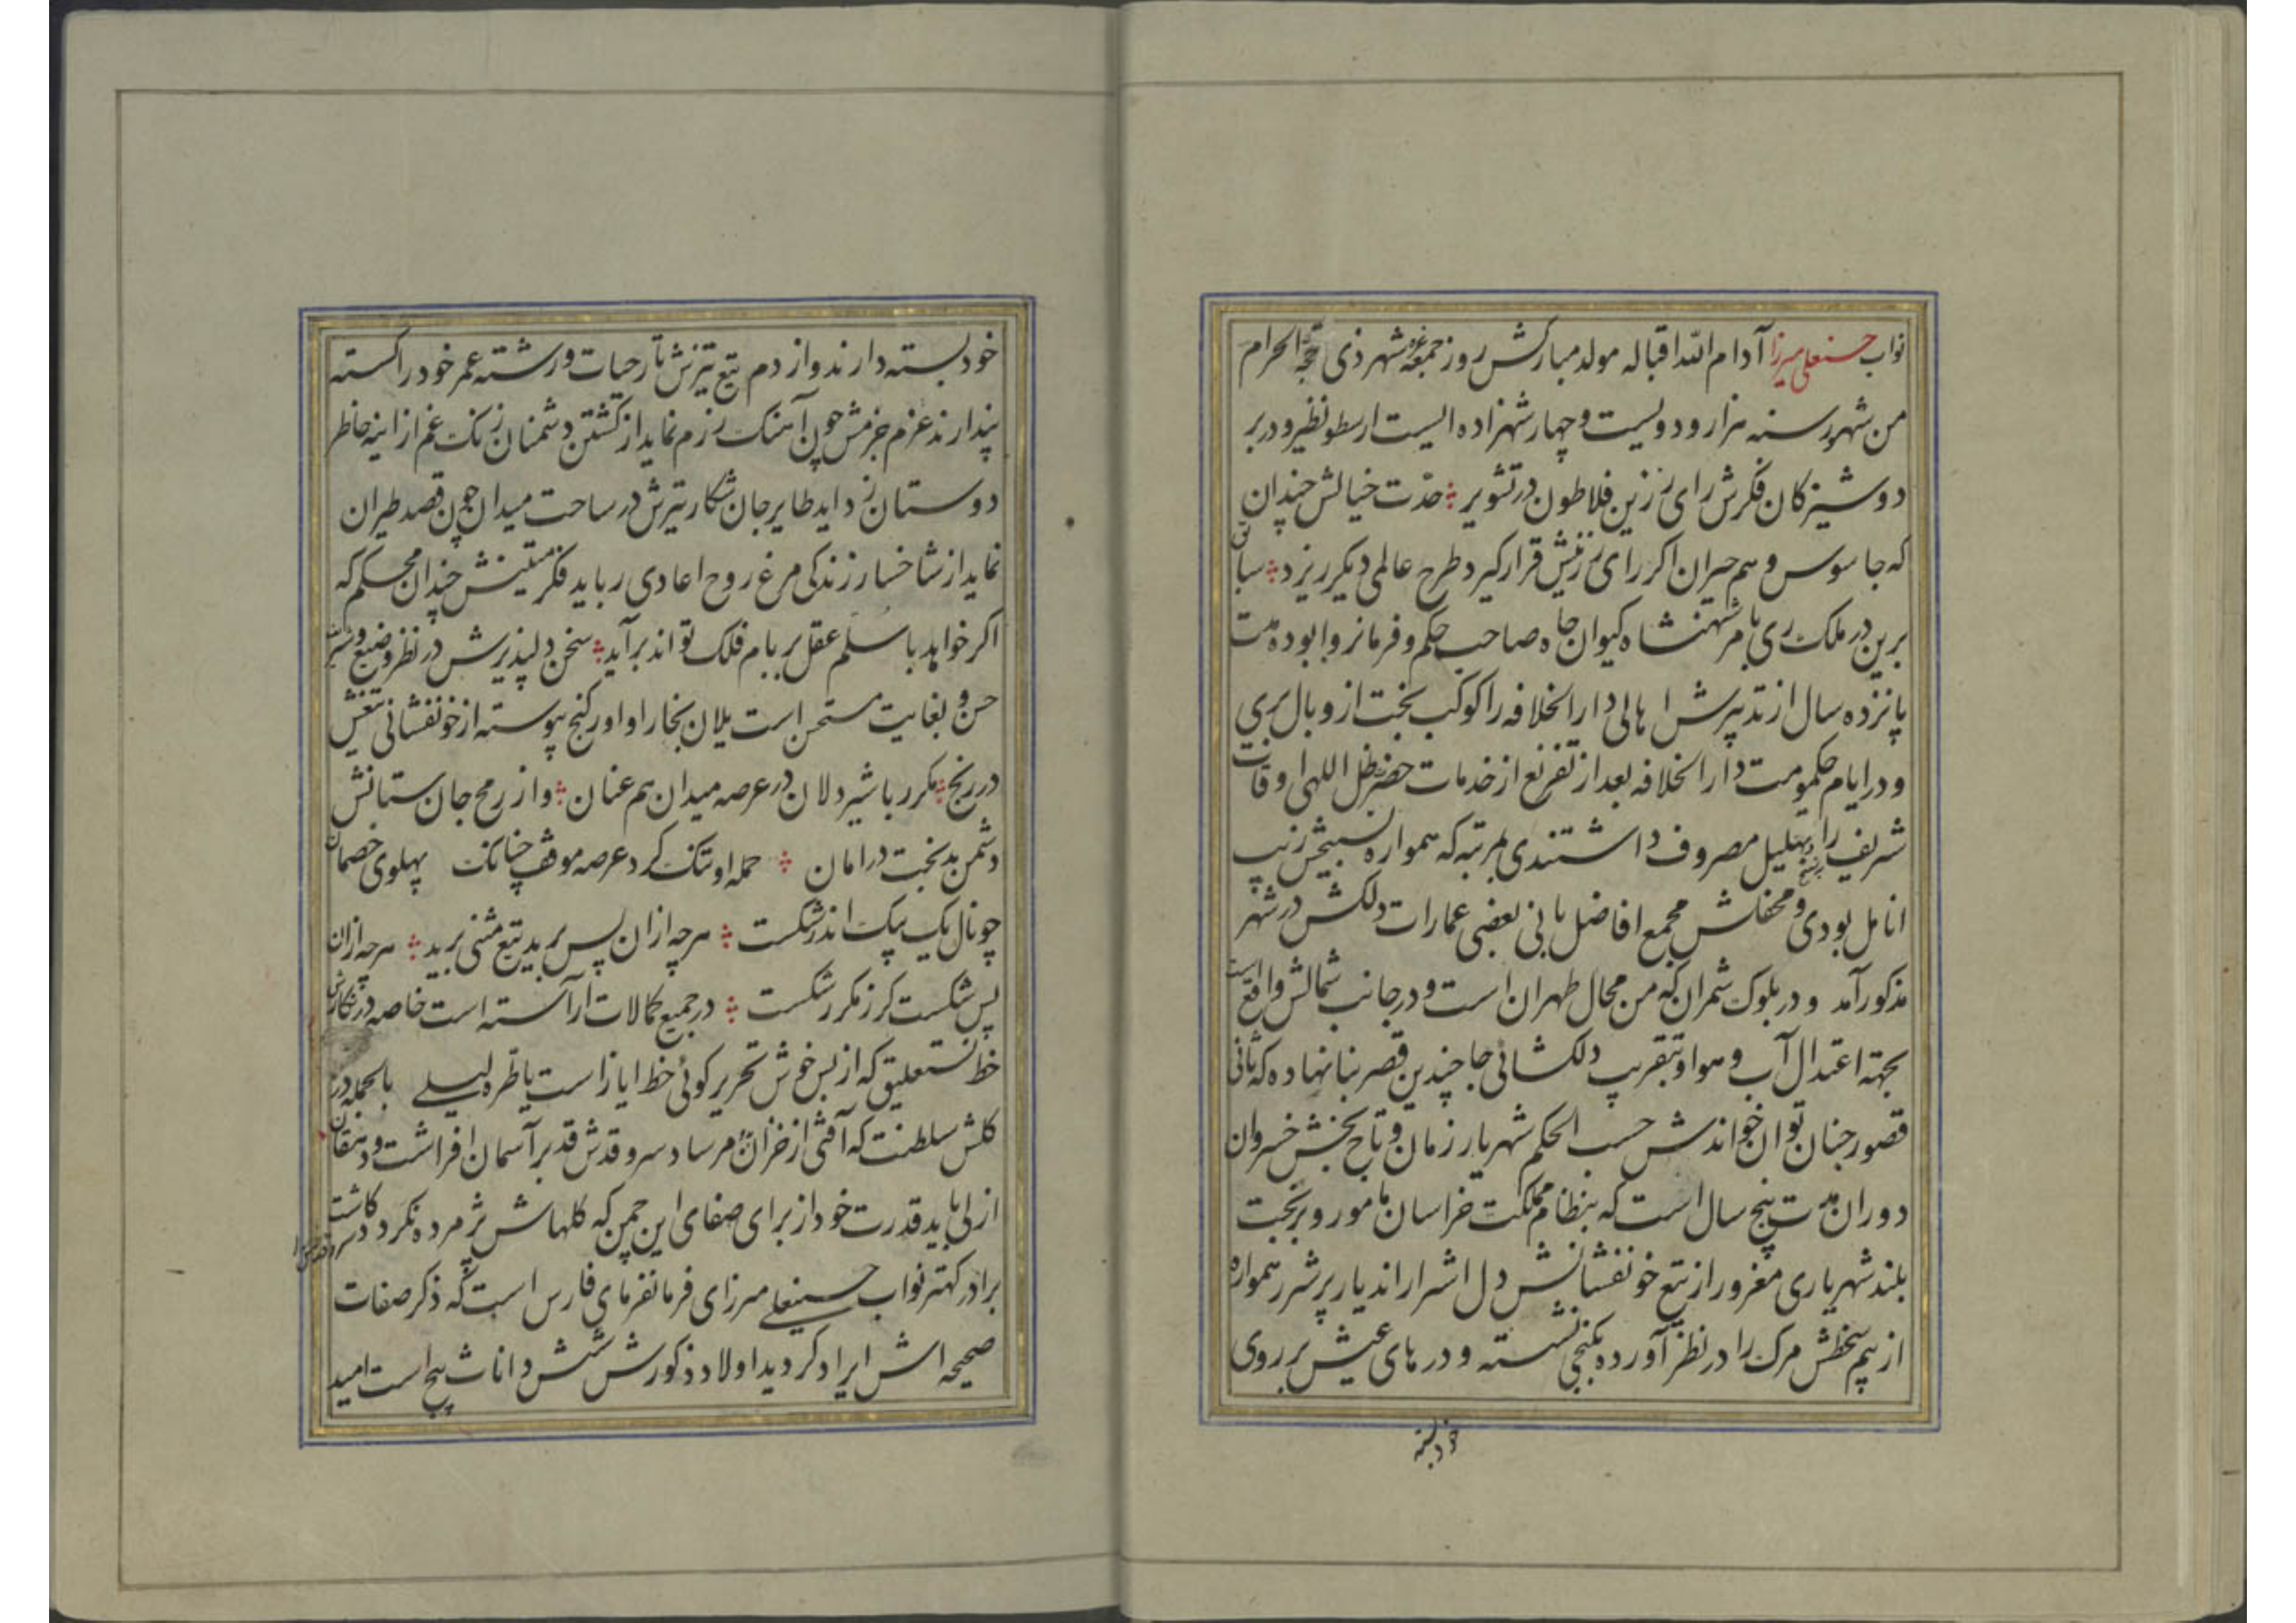 نواب حسنعلی میرزا آدام الله اقباله مولد مبارکش روز جمعه غره شهر ذی حجة الحرام
من شهور سنه هزار و دویست و چهار شهزاده ایست ارسطو نظیر و در بر
دوشیزکان فکرش رای رزین فلاطون در تشویر حدّت خیالش چندان
که جاسوس وهم حیران اکر رای رزینش قرار کیرد طرح عالمی دیکر ریزد سابق
برین در ملک ری بامر شهنشاه کیوان جاه صاحب حکم و فرمانروا بوده مدت
پانزده سال از تدبیرش اهالی دار الخلافه را کوکب بخت از وبال بری
و در ایام حکومت دار الخلافه بعد از تفریغ از خدمات حضرت ظل اللهی اوقات
شریف را بتهلیل مصروف داشتندی بمرتبه که همواره تسبیحش زیب
انامل بودی و محفلش مجمع افاضل بانی بعضی عمارات دلکش در شهر
مذکور آمد و در بلوک شمران که من محال طهران است و در جانب شمالش واقع است
بجهته اعتدال آب و هوا و بتقریب دلکشائی جا چندین قصر بنا نهاده که ثانی
قصور جنان توان خواندش حسب الحکم شهریار زمان و تاج بخش خسروان
دوران مدت پنج سال است که بنظام مملکت خراسان مامور و بر بخت
بلند شهریاری مغرور از تیغ خونفشانش دل اشرار اندیار پر شرر همواره
از بیم سخطش مرک را در نظر آورده بکنجی نشسته و درهای عیش بر روی
خود بسته
خود بسته دارند و از دم تیغ تیزش تار حیات و رشته عمر خود را کسته
پندارند عزم جزمش چون آهنک رزم نماید از کشتن دشمنان زنک غم از اینه خاطر
دوستان زداید طایر جان شکار تیرش در ساحت میدان چون قصد طیران
نماید از شاخسار زندکی مرغ روح اعادی رباید فکر متینش چندان محکم که
اکر خواهد با سلم عقل بر بام فلک تواند برآید سخن دلپذیرش در نظر وضیع و شریف
حسن و بغایت مستحسن است یلان بخارا و اورکنج پیوسته از خونفشانی تیغش
در رنج مکرر با شیردلان در عرصه میدان هم عنان و از رمح جان ستانش
دشمن بدبخت در امان حمله او تنک کرد عرصه موقف چنانک پهلوی خصمان
چو نال یک بیک اندر شکست هرچه از ان پس برید تیغ مثنی برید هرچه ازان
پس شکست کرز مکرر شکست در جمیع کمالات آراسته است خاصه در نکارش
خط نستعلیق که از بس خوش تحریر کوئی خط ایاز است یا طره لیلی بالجمله در
کلشن سلطنت که آفتی از خزانش مرساد سرو قدش قد بر آسمان افراشت و دهقان
ازلی باید قدرت خود از برای صفای این چمن که کلهاش پژمرده نکردد کاشت
برادر کهتر نواب حسینعلی میرزای فرمانفرمای فارس است که ذکر صفات
صحیحه اش ایراد کردید اولاد ذکورش شش و اناث پنج است امید